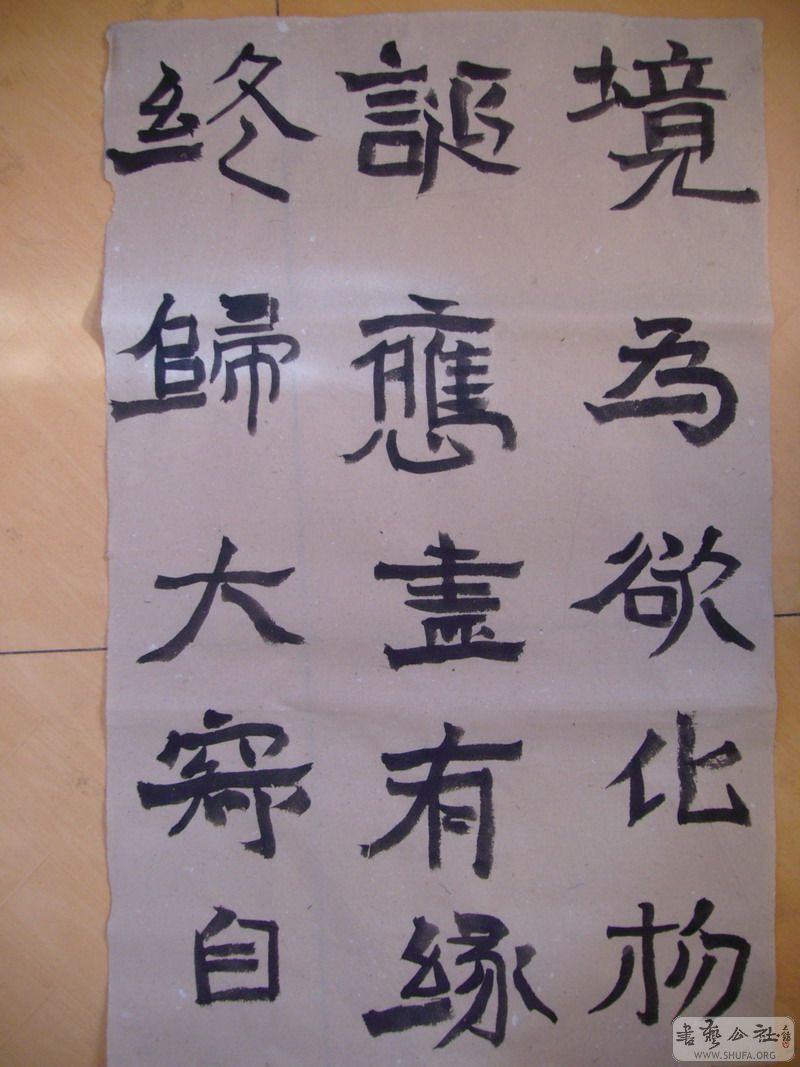 境為欲化杨
謳應盡有緣
終歸大寂自
書藝公社
WWW.SHUFA.ORG